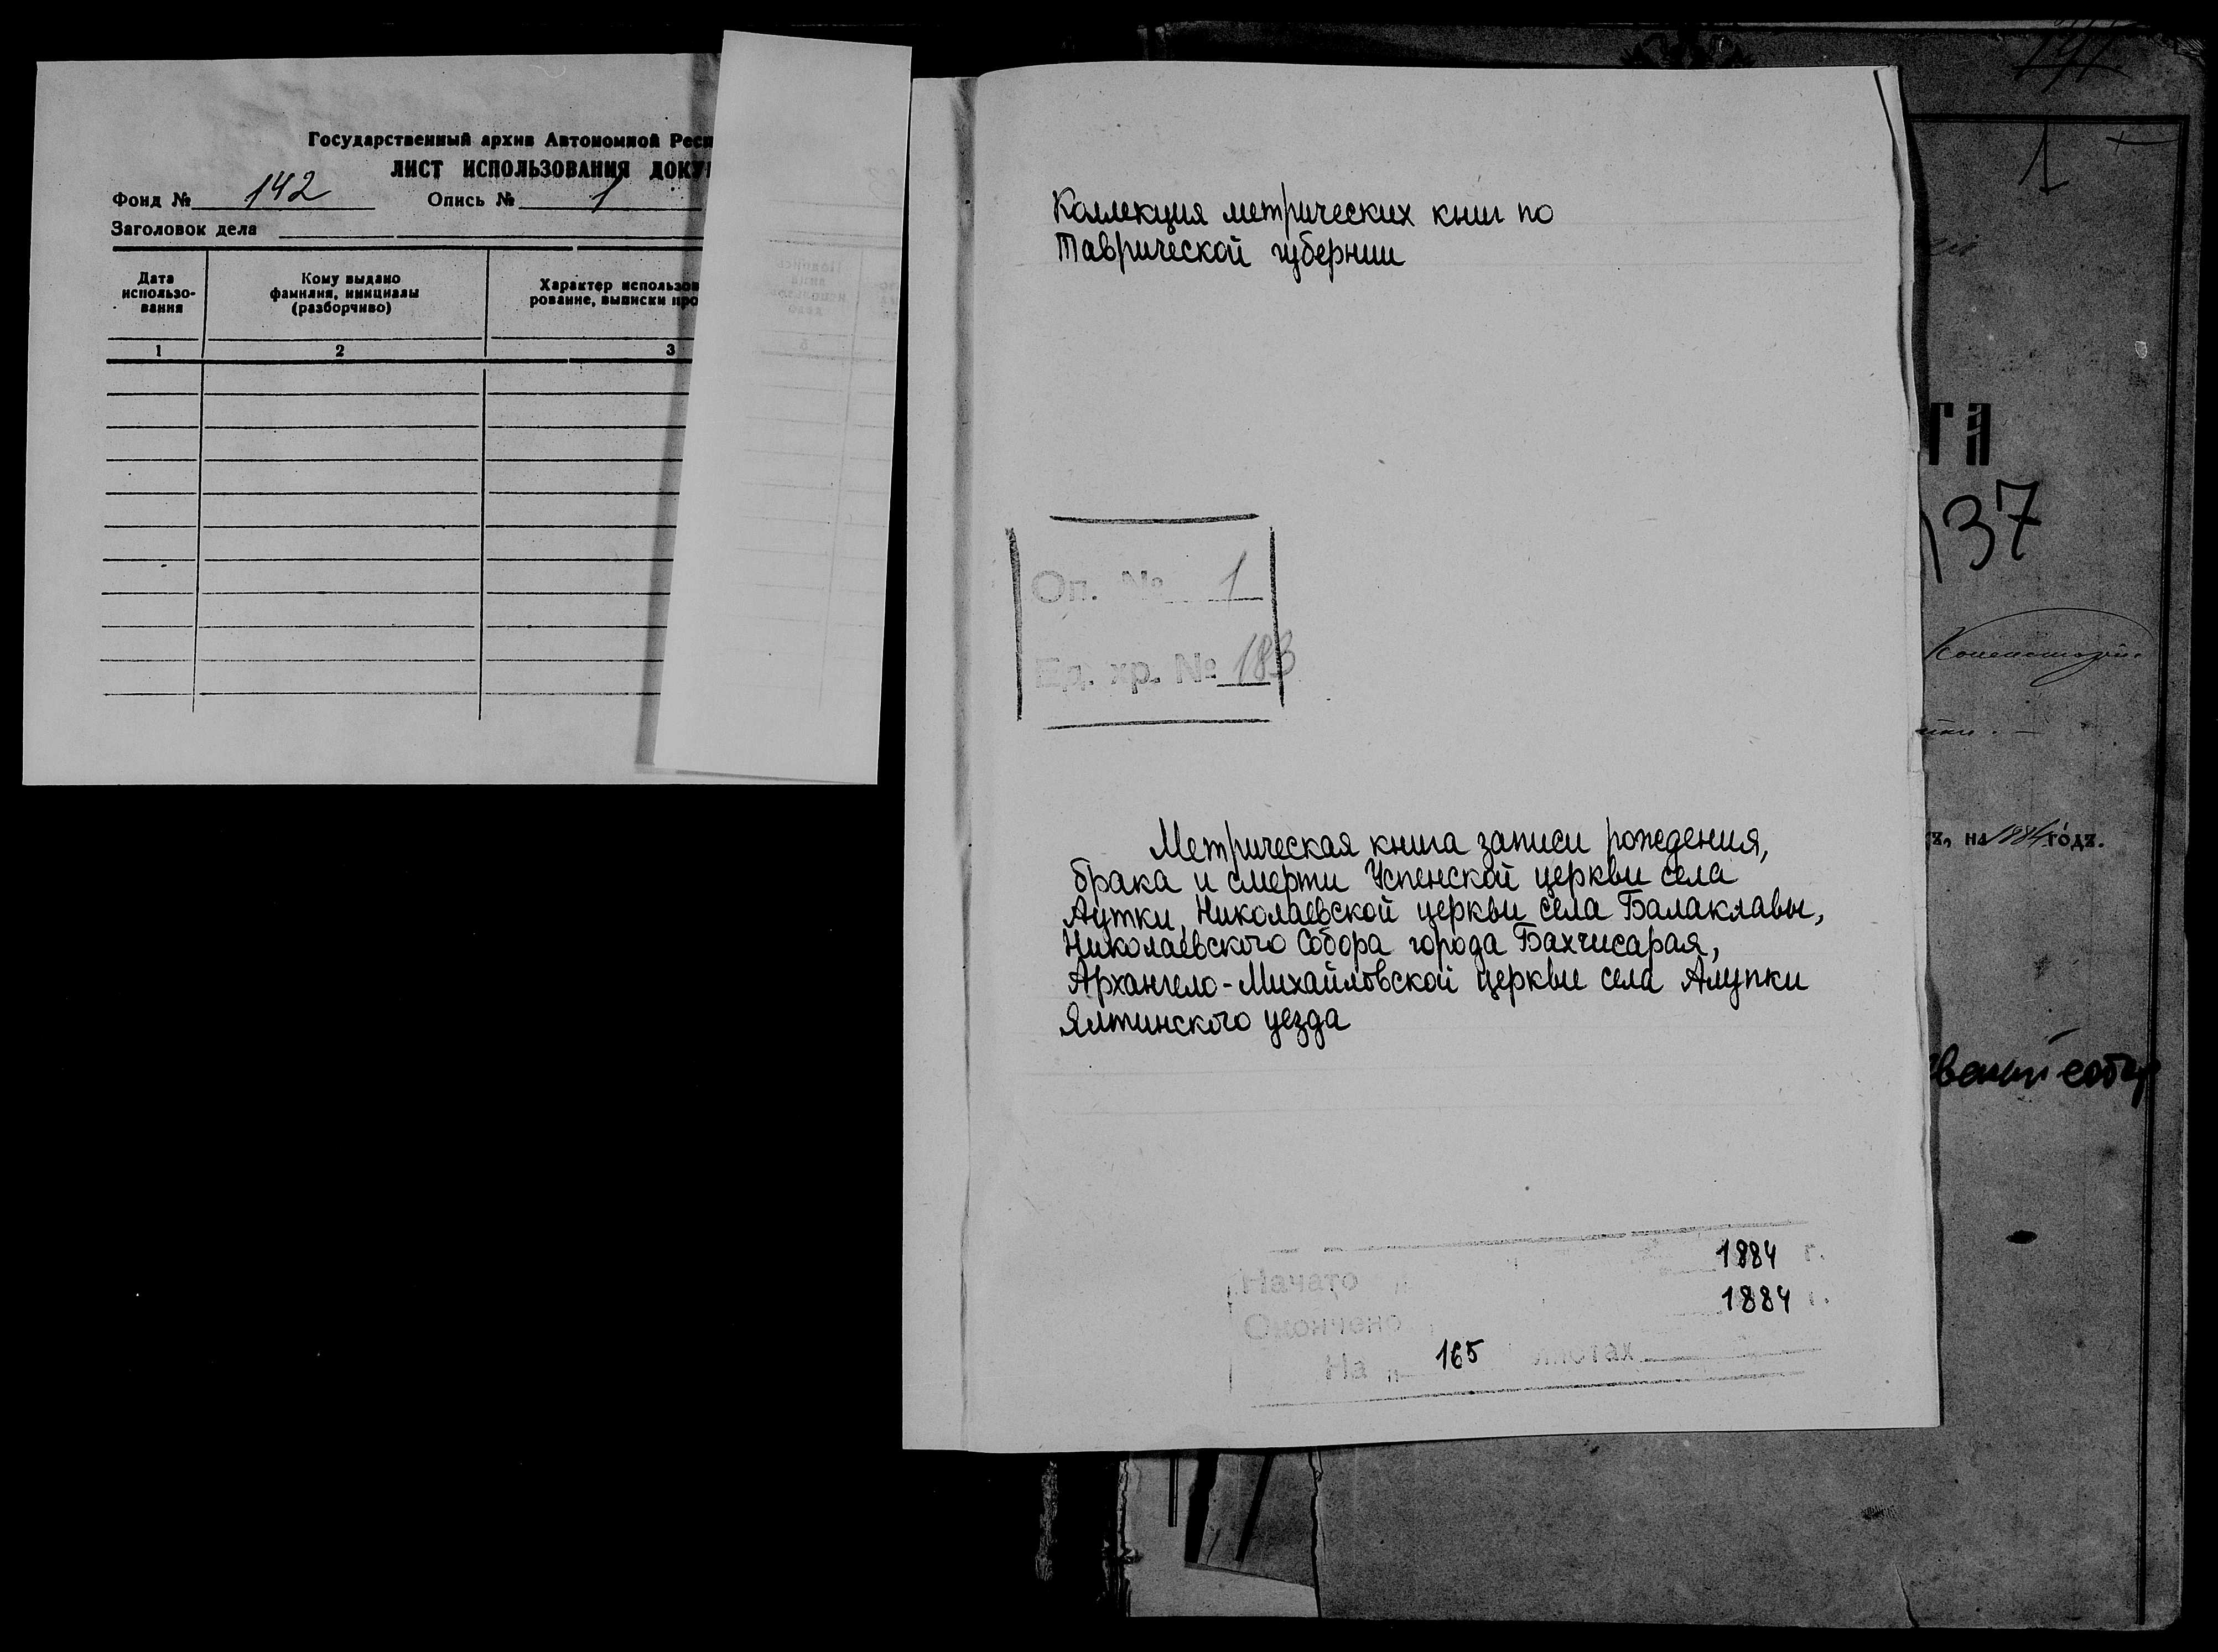 Государственный архив Автономной Респ
ЛИСТ ИСПОЛЬЗОВАНИЯ ДОКУ
Фонд № 142 Опись № 1
Заголовок дела
Дата
использо-
вания
Кому выдано
фамилия, инициалы
(разборчиво)
Характер использов
рование, выписки про
1 2 3
Коллекция метрических книг по
Таврической губернии
Оп. № 1
Ед. хр. № 183
Метрическая книга записи рождения,
брака и смерти Успенской церкви села
Аутки, Николаевской церкви села Балаклавы,
Николаевского Собора города Бахчисарая,
Архангело-Михайловской церкви села Алупки
Ялтинского уезда
Начато 1884 г.
Окончено 1884 г.
На „ 165 листах
1
га
137
ъ, на 1884 годъ.